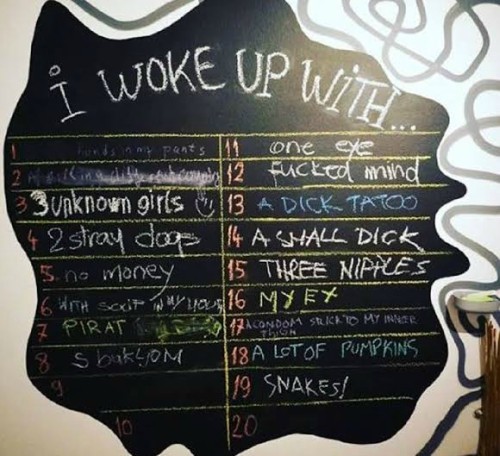 i WOKE UP WITH...
1 hands in my pants
2
3 3 unknown girls
4 2 stray dogs
5. no money
6 WITH IN MY
7 PIRAT
8 S
9
10
11 one eye
12 fucked mind
13 A DICK TATOO
14 A SMALL DICK
15 THREE NIPPLES
16 MY EX
17 A CONDOM STUCK TO MY INNER
THIGH
18 A LOT OF PUMPKINS
19 SNAKES!
20